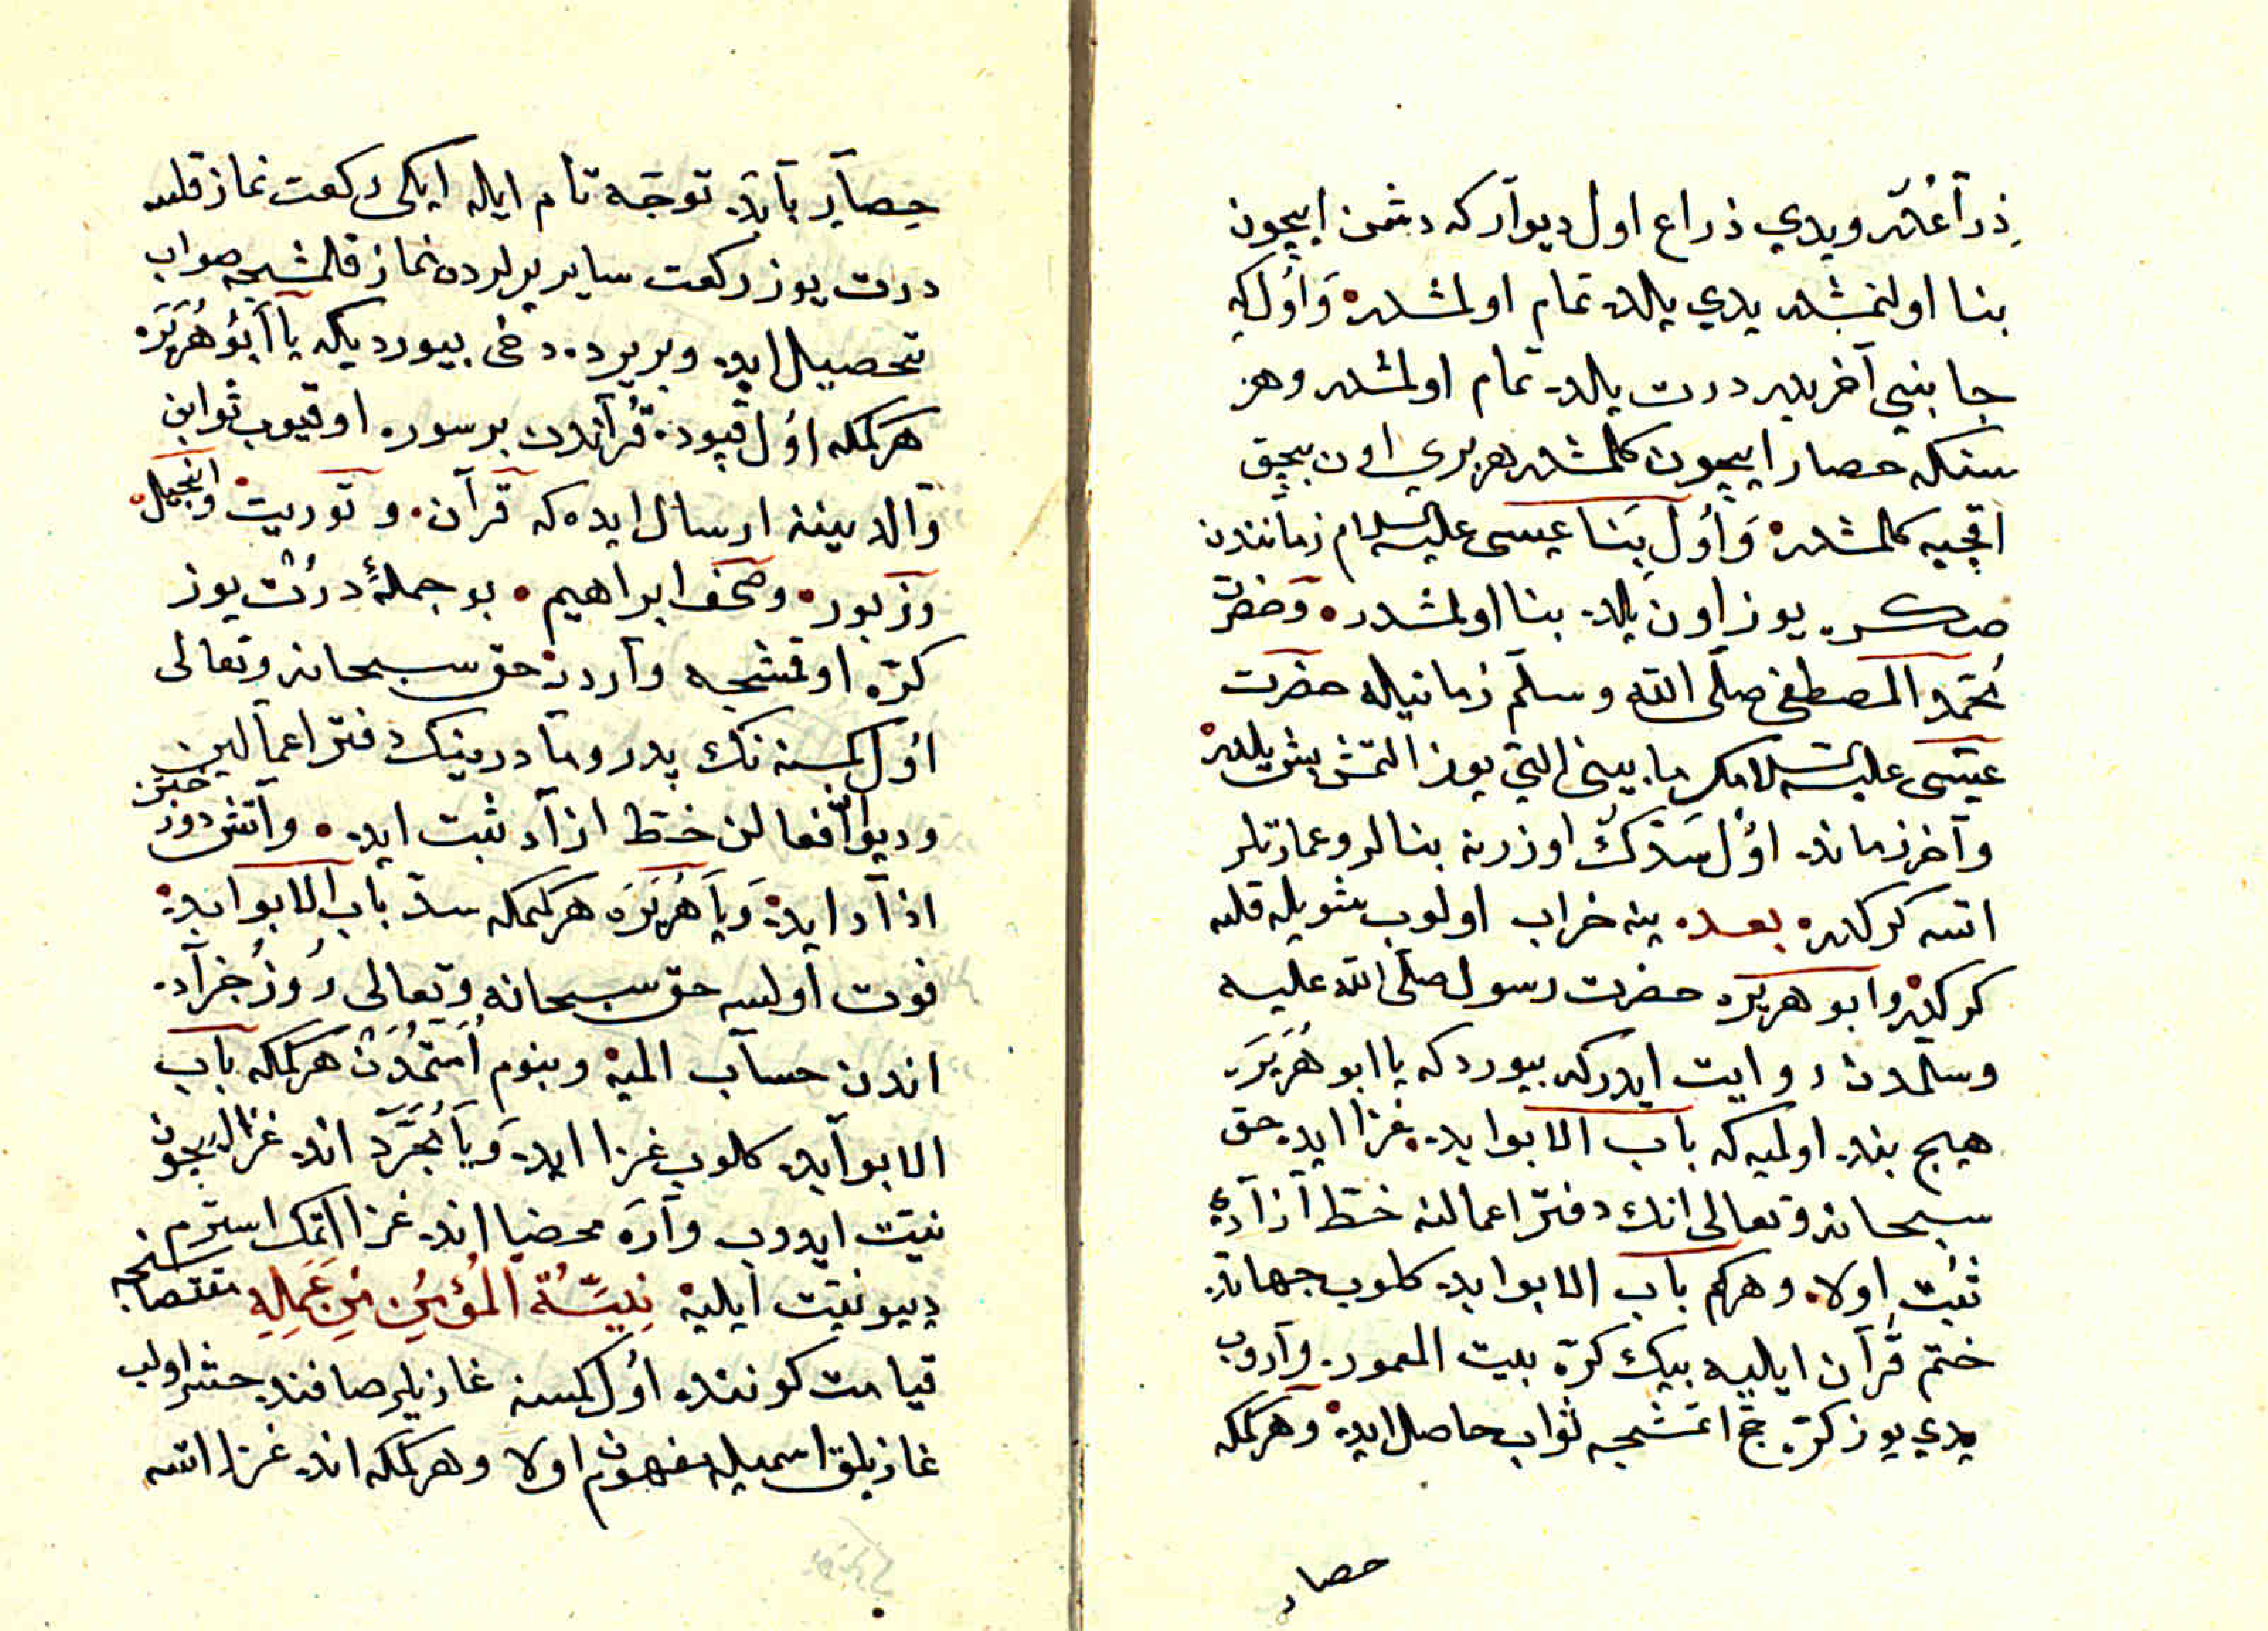 ذراعدر ويدي ذراع اول ديوار كه دشمن ايچون
بنا اولنمشدر يدي يلده تمام اولمشدر وَاوُل كه
جانبي آخريدر درت يلده تمام اولمشدر وهر
سنكه حصار ايچون كلمشدر هر بري اون بيچق
اقچيه كلمشدر وَاوُل بِنا عيسى عليه السلام زمانندن
صكره يوز اون يلده بنا اولمشدر وحضرت
مُحمّد المصطفى صلّى الله وسلّم زمانيله حضرت
عيسى عليه السلامك مابيني التي يوز التمش بش يلدر
وآخر زمانده اوُل سَدّك اوزرنه بنالر وعمارتلر
اتسه كركدر بعده ينه خراب اولوب شويله قلسه
كركدر وابو هريره حضرت رسول صلّى الله عليه
وسلمدن روايت ايدركه بيورد كه يا ابو هُرَيرَه
هيچ بنده اولميه كه باب الابوابده غزا ايده حق
سبحانه وتعالى انك دفتر اعمالنه خطّ آزادي
ثَبْت اولا وهركم باب الابوابده كلوب جهانده
ختم قُرآن ايليه بيك كرّه بيت المعموره واروب
يدي يوز كرّه حج اتمشجه ثواب حاصل ايده وهركمكه
حصار
حِصارِ بابده توجّه تام ايله ايكى ركعت نماز قلسه
درت يوز ركعت ساير يرلرده نماز قلمشجه صواب
تحصيل ايده وبر يرده دخى بيورديكه يا اَبُو هُرَيْرَه
هركمكه اوُل قپوده قُرآندن بر سوره اوقيوب ثوابن
والدينينه ارسال ايده كه قرآن وتوريت وانجيل
وزبور وصحف ابراهيم بو جملهٔ درت يوز
كرّه اوقمشجه واردر حق سبحانه وتعالى
اوُل كمسنه نك پدر ومادرينك دفتر اعمالين
وديوان افعالن خطّ ازاد ثبت ايده وآتش دوزخدن
ازاد ايده وَيا هُرَيْرَه هركمكه سدّ باب الابوابده
فوت اولسه حق سبحانه وتعالى رُوزُ جزاده
اندن حساب المیه وبنوم اُمّتمدن هركمكه باب
الابوابده كلوب غزا ايده وَيا مُجرّد انده غزا ايچون
نيّت ايدوب واره محضا انده غزا اتمك استرم
ديو نيّت ايليه نِيَّةُ الْمُؤْمِنِ مِن عَمَلِهِ مقتضاسنجه
قيامت كوننده اوُل كمسنه غازيلر صافنده حشر اولب
غازيلق اسميله مفهوم اولا وهركمكه انده غزا اتسه